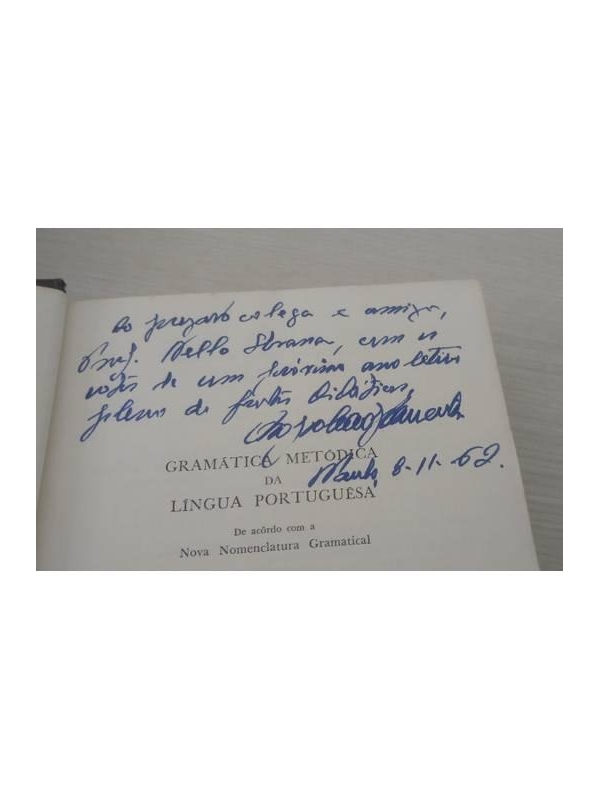 Ao prezado colega e amigo,
Prof. Nello Strana, com os
votos de um próximo ano letivo
pleno de
GRAMÁTICA METÓDICA
8-11-62.
DA
LÍNGUA PORTUGUÊSA
De acôrdo com a
Nova Nomenclatura Gramatical